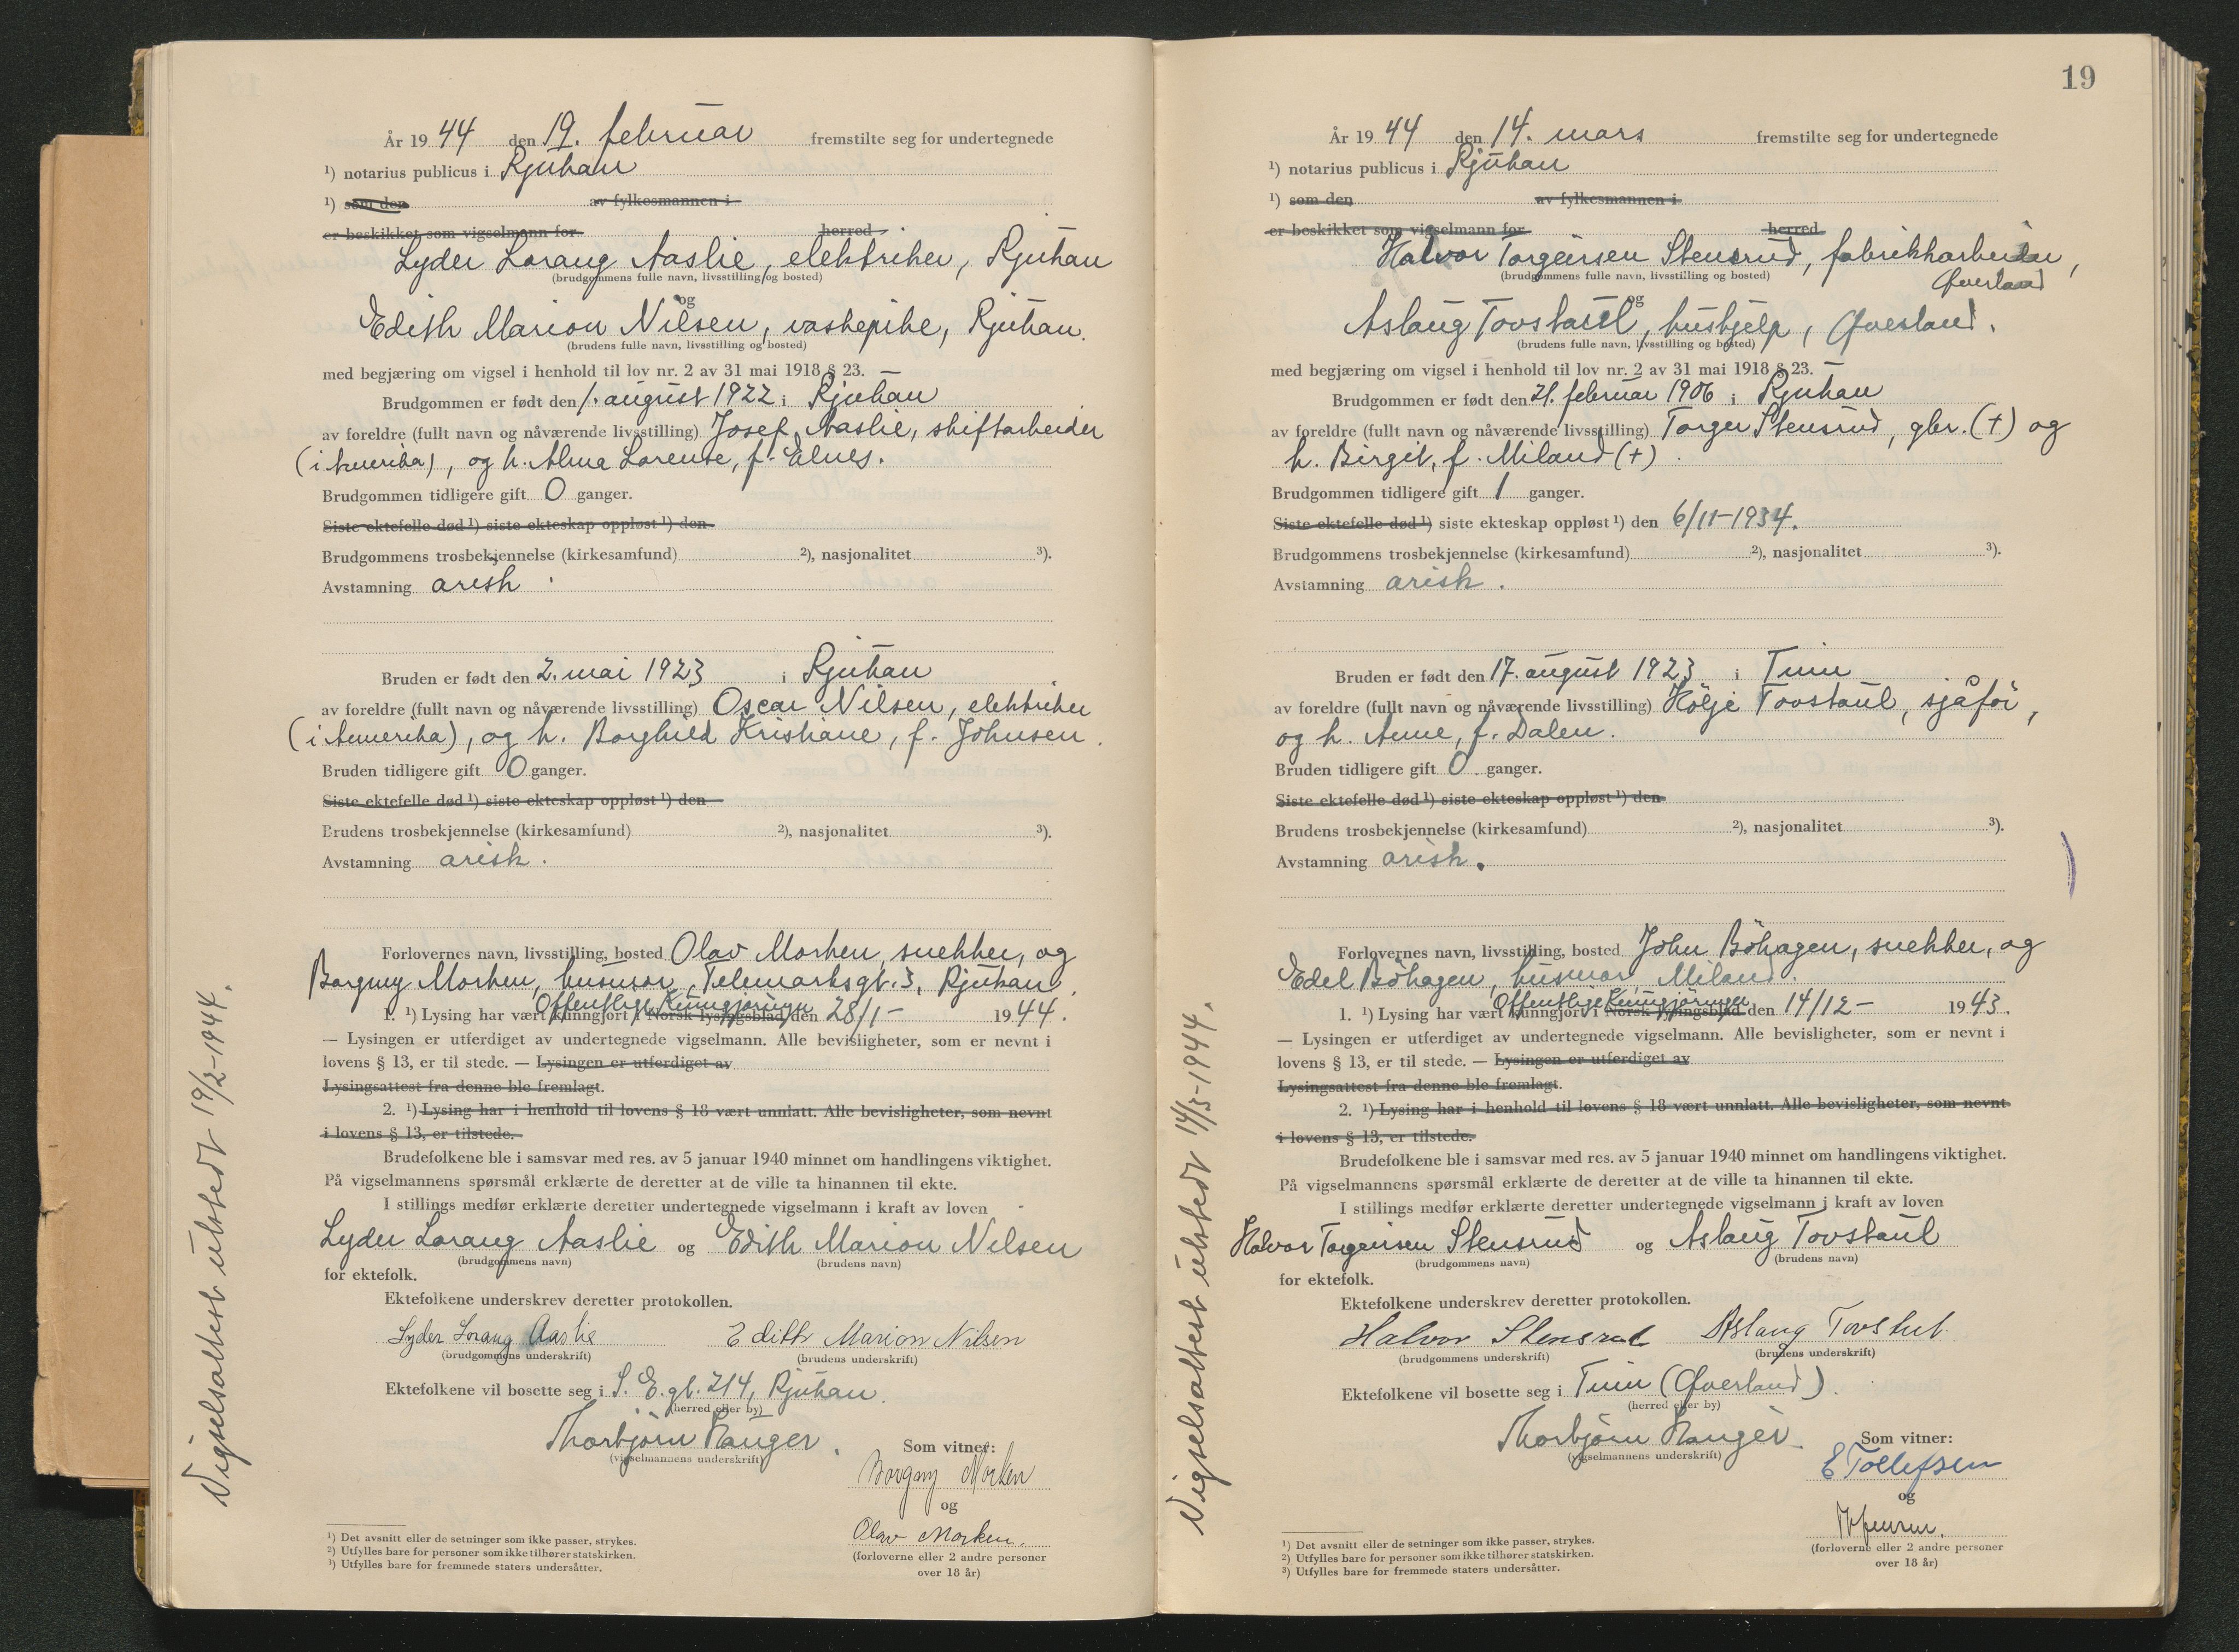 År 1944 den 19. februar fremstilte seg for undertegnede
¹) notarius publicus i Rjukan
¹) som den av fylkesmannen i
er beskikket som vigselmann for herred
Lyder Lorang Aaslie, elektriker, Rjukan
(brudgommens fulle navn, livsstilling og bosted)
og
Edith Marion Nilsen, vaskepike, Rjukan.
(brudens fulle navn, livsstilling og bosted)
med begjæring om vigsel i henhold til lov nr. 2 av 31 mai 1918 § 23.
Brudgommen er født den 1. august 1922 i Rjukan
av foreldre (fullt navn og nåværende livsstilling) Josef Aaslie, skiftarbeider
(i Amerika), og h. Alma Lorense, f. Elnes.
Brudgommen tidligere gift 0 ganger.
Siste ektefelle død ¹) siste ekteskap oppløst ¹) den
Brudgommens trosbekjennelse (kirkesamfund) ²), nasjonalitet ³).
Avstamning arisk.
Bruden er født den 2. mai 1923 i Rjukan
av foreldre (fullt navn og nåværende livsstilling) Oscar Nilsen, elektriker
(i Amerika), og h. Borghild Kristiane, f. Johnsen.
Bruden tidligere gift 0 ganger.
Siste ektefelle død ¹) siste ekteskap oppløst ¹) den
Brudens trosbekjennelse (kirkesamfund) ²), nasjonalitet ³).
Avstamning arisk.
Forlovernes navn, livsstilling, bosted Olav Morken, snekker, og
Borgny Morken, husmor, Telemarksgt. 3, Rjukan.
Offentlige Kunngjøringer
1. ¹) Lysing har vært kunngjort i Norsk lysingsblad den 28/1- 1944.
— Lysingen er utferdiget av undertegnede vigselmann. Alle bevisligheter, som er nevnt i
lovens § 13, er til stede. — Lysingen er utferdiget av
Lysingsattest fra denne ble fremlagt.
2. ¹) Lysing har i henhold til lovens § 18 vært unnlatt. Alle bevisligheter, som nevnt
i lovens § 13, er tilstede.
Brudefolkene ble i samsvar med res. av 5 januar 1940 minnet om handlingens viktighet.
På vigselmannens spørsmål erklærte de deretter at de ville ta hinannen til ekte.
I stillings medfør erklærte deretter undertegnede vigselmann i kraft av loven
Lyder Lorang Aaslie og Edith Marion Nilsen
(brudgommens navn) (brudens navn)
for ektefolk.
Ektefolkene underskrev deretter protokollen.
Lyder Lorang Aaslie Edith Marion Nilsen
(brudgommens underskrift) (brudens underskrift)
Ektefolkene vil bosette seg i S. E. gt. 214, Rjukan.
(herred eller by)
Thorbjørn Hauger.
(vigselmannens underskrift)
Som vitner:
Borgny Morken
og
Olav Morken.
(forloverne eller 2 andre personer
over 18 år)
¹) Det avsnitt eller de setninger som ikke passer, strykes.
²) Utfylles bare for personer som ikke tilhører statskirken.
³) Utfylles bare for fremmede staters undersåtter.
Vigselsattest utstedt 19/2-1944.
19
År 1944 den 14. mars fremstilte seg for undertegnede
¹) notarius publicus i Rjukan
¹) som den av fylkesmannen i
er beskikket som vigselmann for herred
Halvor Torgeirsen Stensrud, fabrikkarbeider,
Øverland
(brudgommens fulle navn, livsstilling og bosted)
og
Aslaug Tovstaul, hushjelp, Øverland.
(brudens fulle navn, livsstilling og bosted)
med begjæring om vigsel i henhold til lov nr. 2 av 31 mai 1918 § 23.
Brudgommen er født den 21. februar 1906 i Rjukan
av foreldre (fullt navn og nåværende livsstilling) Torger Stensrud, gbr. (+) og
h. Birgit, f. Miland (+).
Brudgommen tidligere gift 1 ganger.
Siste ektefelle død ¹) siste ekteskap oppløst ¹) den 6/11-1934.
Brudgommens trosbekjennelse (kirkesamfund) ²), nasjonalitet ³).
Avstamning arisk.
Bruden er født den 17. august 1923 i Tinn
av foreldre (fullt navn og nåværende livsstilling) Hölje Tovstaul, sjåför,
og h. Anne, f. Dalen.
Bruden tidligere gift 0 ganger.
Siste ektefelle død ¹) siste ekteskap oppløst ¹) den
Brudens trosbekjennelse (kirkesamfund) ²), nasjonalitet ³).
Avstamning arisk.
Forlovernes navn, livsstilling, bosted John Böhagen, snekker, og
Edel Böhagen, husmor, Miland.
Offentlige Kunngjøringer
1. ¹) Lysing har vært kunngjort i Norsk lysingsblad den 14/12- 1943.
— Lysingen er utferdiget av undertegnede vigselmann. Alle bevisligheter, som er nevnt i
lovens § 13, er til stede. — Lysingen er utferdiget av
Lysingsattest fra denne ble fremlagt.
2. ¹) Lysing har i henhold til lovens § 18 vært unnlatt. Alle bevisligheter, som nevnt
i lovens § 13, er tilstede.
Brudefolkene ble i samsvar med res. av 5 januar 1940 minnet om handlingens viktighet.
På vigselmannens spørsmål erklærte de deretter at de ville ta hinannen til ekte.
I stillings medfør erklærte deretter undertegnede vigselmann i kraft av loven
Halvor Torgeirsen Stensrud og Aslaug Tovstaul
(brudgommens navn) (brudens navn)
for ektefolk.
Ektefolkene underskrev deretter protokollen.
Halvor Stensrud Aslaug Tovstul
(brudgommens underskrift) (brudens underskrift)
Ektefolkene vil bosette seg i Tinn (Øverland).
(herred eller by)
Thorbjørn Hauger.
(vigselmannens underskrift)
Som vitner:
E Tollefsen
og
(forloverne eller 2 andre personer
over 18 år)
¹) Det avsnitt eller de setninger som ikke passer, strykes.
²) Utfylles bare for personer som ikke tilhører statskirken.
³) Utfylles bare for fremmede staters undersåtter.
Vigselsattest utstedt 14/3-1944.